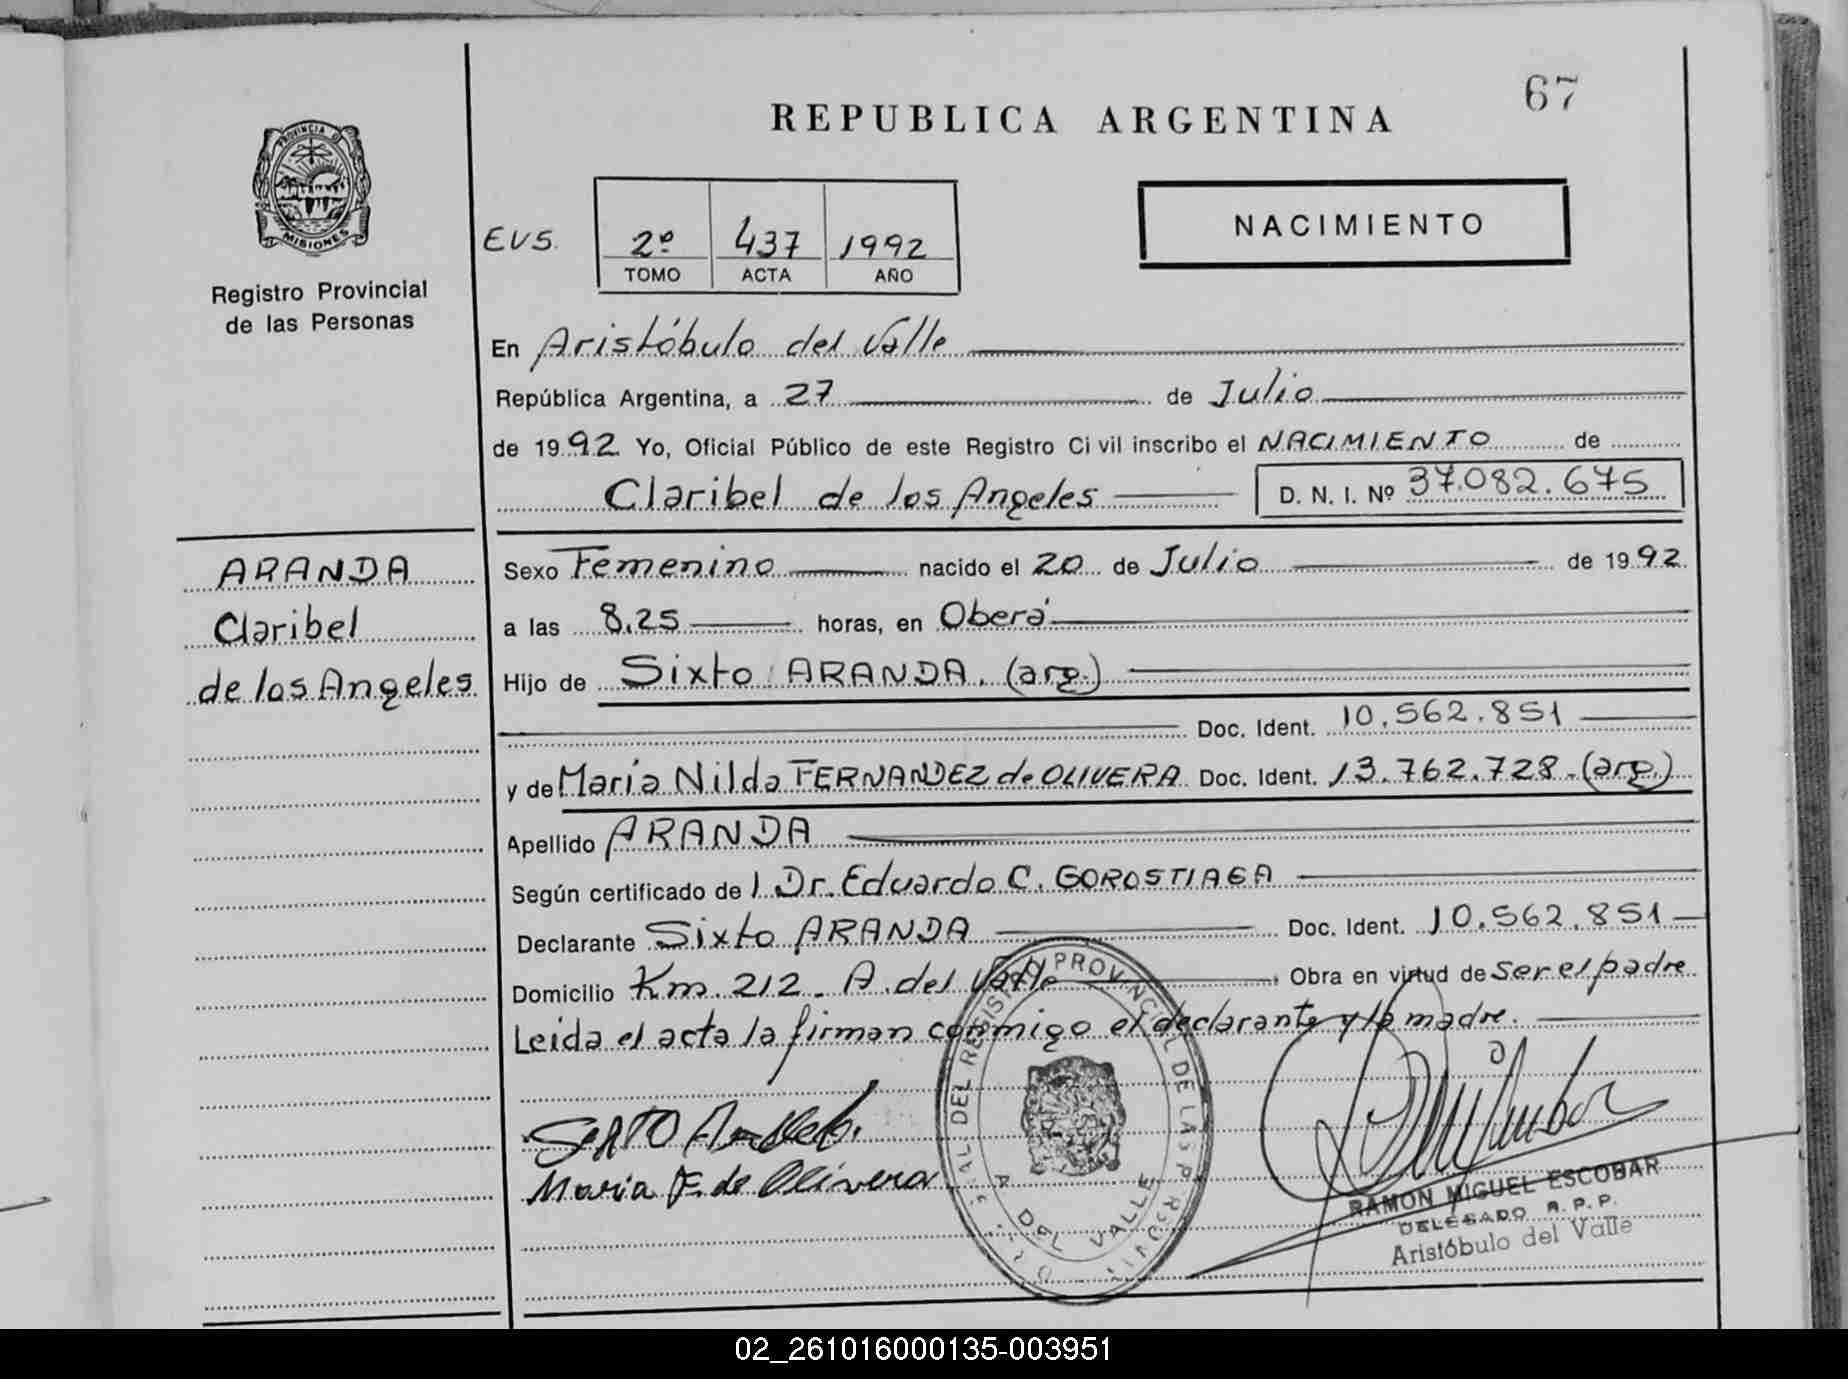 67
REPUBLICA ARGENTINA
PROVINCIA DE
MISIONES
Registro Provincial
de las Personas
EVS.
2º 437 1992
TOMO ACTA AÑO
NACIMIENTO
En Aristóbulo del Valle
República Argentina, a 27 de Julio
de 1992 Yo, Oficial Público de este Registro Civil inscribo el NACIMIENTO de
Claribel de los Angeles D. N. I. Nº 37.082.675
ARANDA
Claribel
de los Angeles
Sexo Femenino nacido el 20 de Julio de 1992
a las 8.25 horas, en Oberá
Hijo de Sixto ARANDA. (arg.)
Doc. Ident. 10.562.851
y de María Nilda FERNANDEZ de OLIVERA Doc. Ident. 13.762.728.(arg.)
Apellido ARANDA
Según certificado de Dr. Eduardo C. GOROSTIAGA
Declarante Sixto ARANDA Doc. Ident. 10.562.851
Domicilio Km. 212. A. del Valle, Obra en virtud de ser el padre
Leida el acta la firman conmigo el declarante y la madre.
Maria F. de Olivera
DEL REGISTRO PROVINCIAL DE LAS PERSONAS
A. DEL VALLE
RAMON MIGUEL ESCOBAR
DELEGADO R. P. P.
Aristóbulo del Valle
02_261016000135-003951